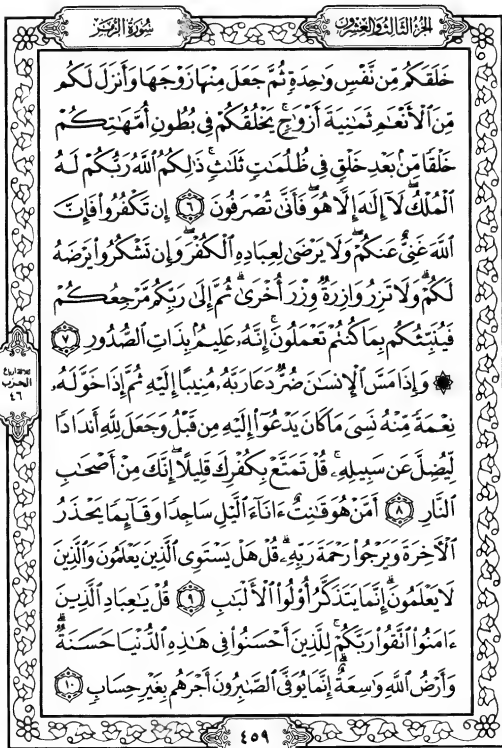 الجُزءُ الثَّالِثُ وَالعِشْرُونَ
سُورَةُ الزُّمَرِ
خَلَقَكُم مِّن نَّفْسٍ وَٰحِدَةٍ ثُمَّ جَعَلَ مِنْهَا زَوْجَهَا وَأَنزَلَ لَكُم
مِّنَ ٱلْأَنْعَٰمِ ثَمَٰنِيَةَ أَزْوَٰجٍۚ يَخْلُقُكُمْ فِي بُطُونِ أُمَّهَٰتِكُمْ
خَلْقًا مِّنۢ بَعْدِ خَلْقٍ فِي ظُلُمَٰتٍ ثَلَٰثٍۚ ذَٰلِكُمُ ٱللَّهُ رَبُّكُمْ لَهُ
ٱلْمُلْكُۖ لَآ إِلَٰهَ إِلَّا هُوَۖ فَأَنَّىٰ تُصْرَفُونَ ٦ إِن تَكْفُرُوا۟ فَإِنَّ
ٱللَّهَ غَنِيٌّ عَنكُمْۖ وَلَا يَرْضَىٰ لِعِبَادِهِ ٱلْكُفْرَۖ وَإِن تَشْكُرُوا۟ يَرْضَهُ
لَكُمْۗ وَلَا تَزِرُ وَازِرَةٌ وِزْرَ أُخْرَىٰۗ ثُمَّ إِلَىٰ رَبِّكُم مَّرْجِعُكُمْ
فَيُنَبِّئُكُم بِمَا كُنتُمْ تَعْمَلُونَۚ إِنَّهُۥ عَلِيمٌۢ بِذَاتِ ٱلصُّدُورِ ٧
۞ وَإِذَا مَسَّ ٱلْإِنسَٰنَ ضُرٌّ دَعَا رَبَّهُۥ مُنِيبًا إِلَيْهِ ثُمَّ إِذَا خَوَّلَهُۥ
نِعْمَةً مِّنْهُ نَسِيَ مَا كَانَ يَدْعُوٓا۟ إِلَيْهِ مِن قَبْلُ وَجَعَلَ لِلَّهِ أَندَادًا
لِّيُضِلَّ عَن سَبِيلِهِۦۚ قُلْ تَمَتَّعْ بِكُفْرِكَ قَلِيلًاۖ إِنَّكَ مِنْ أَصْحَٰبِ
ٱلنَّارِ ٨ أَمَّنْ هُوَ قَٰنِتٌ ءَانَآءَ ٱلَّيْلِ سَاجِدًا وَقَآئِمًا يَحْذَرُ
ٱلْءَاخِرَةَ وَيَرْجُوا۟ رَحْمَةَ رَبِّهِۦۗ قُلْ هَلْ يَسْتَوِي ٱلَّذِينَ يَعْلَمُونَ وَٱلَّذِينَ
لَا يَعْلَمُونَۗ إِنَّمَا يَتَذَكَّرُ أُو۟لُوا۟ ٱلْأَلْبَٰبِ ٩ قُلْ يَٰعِبَادِ ٱلَّذِينَ
ءَامَنُوا۟ ٱتَّقُوا۟ رَبَّكُمْۚ لِلَّذِينَ أَحْسَنُوا۟ فِي هَٰذِهِ ٱلدُّنْيَا حَسَنَةٌۗ
وَأَرْضُ ٱللَّهِ وَٰسِعَةٌۗ إِنَّمَا يُوَفَّى ٱلصَّٰبِرُونَ أَجْرَهُم بِغَيْرِ حِسَابٍ ١٠
ثلاثة أرباع
الحزب
٤٦
٤٥٩